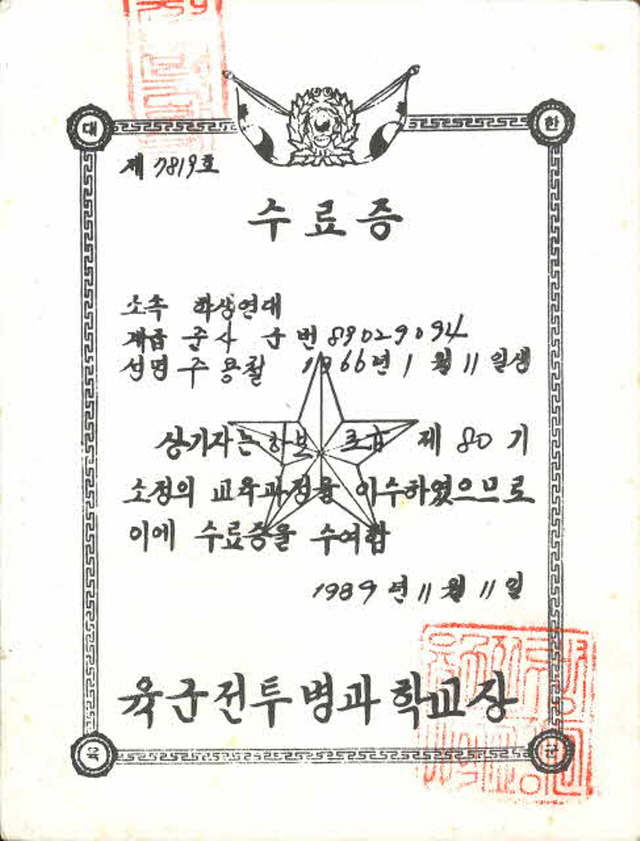 대 한
제 7819호
수료증
소속 학생연대
계급 준사 군번 89029094
성명 주용철 1966년 1월 11일생
상기자는 초급 제 80 기
소정의 교육과정을 이수하였으므로
이에 수료증을 수여함
1989년 11월 11일
육군전투병과학교장
육 군